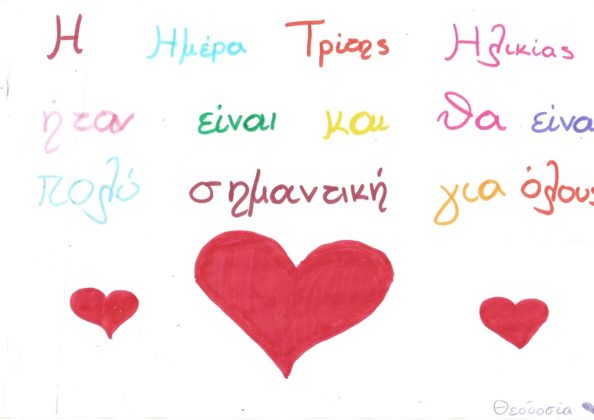 Η Ημέρα Τρίτης Ηλικίας
ήταν είναι και θα είνα
πολύ σημαντική για όλους
Θεοδοσία